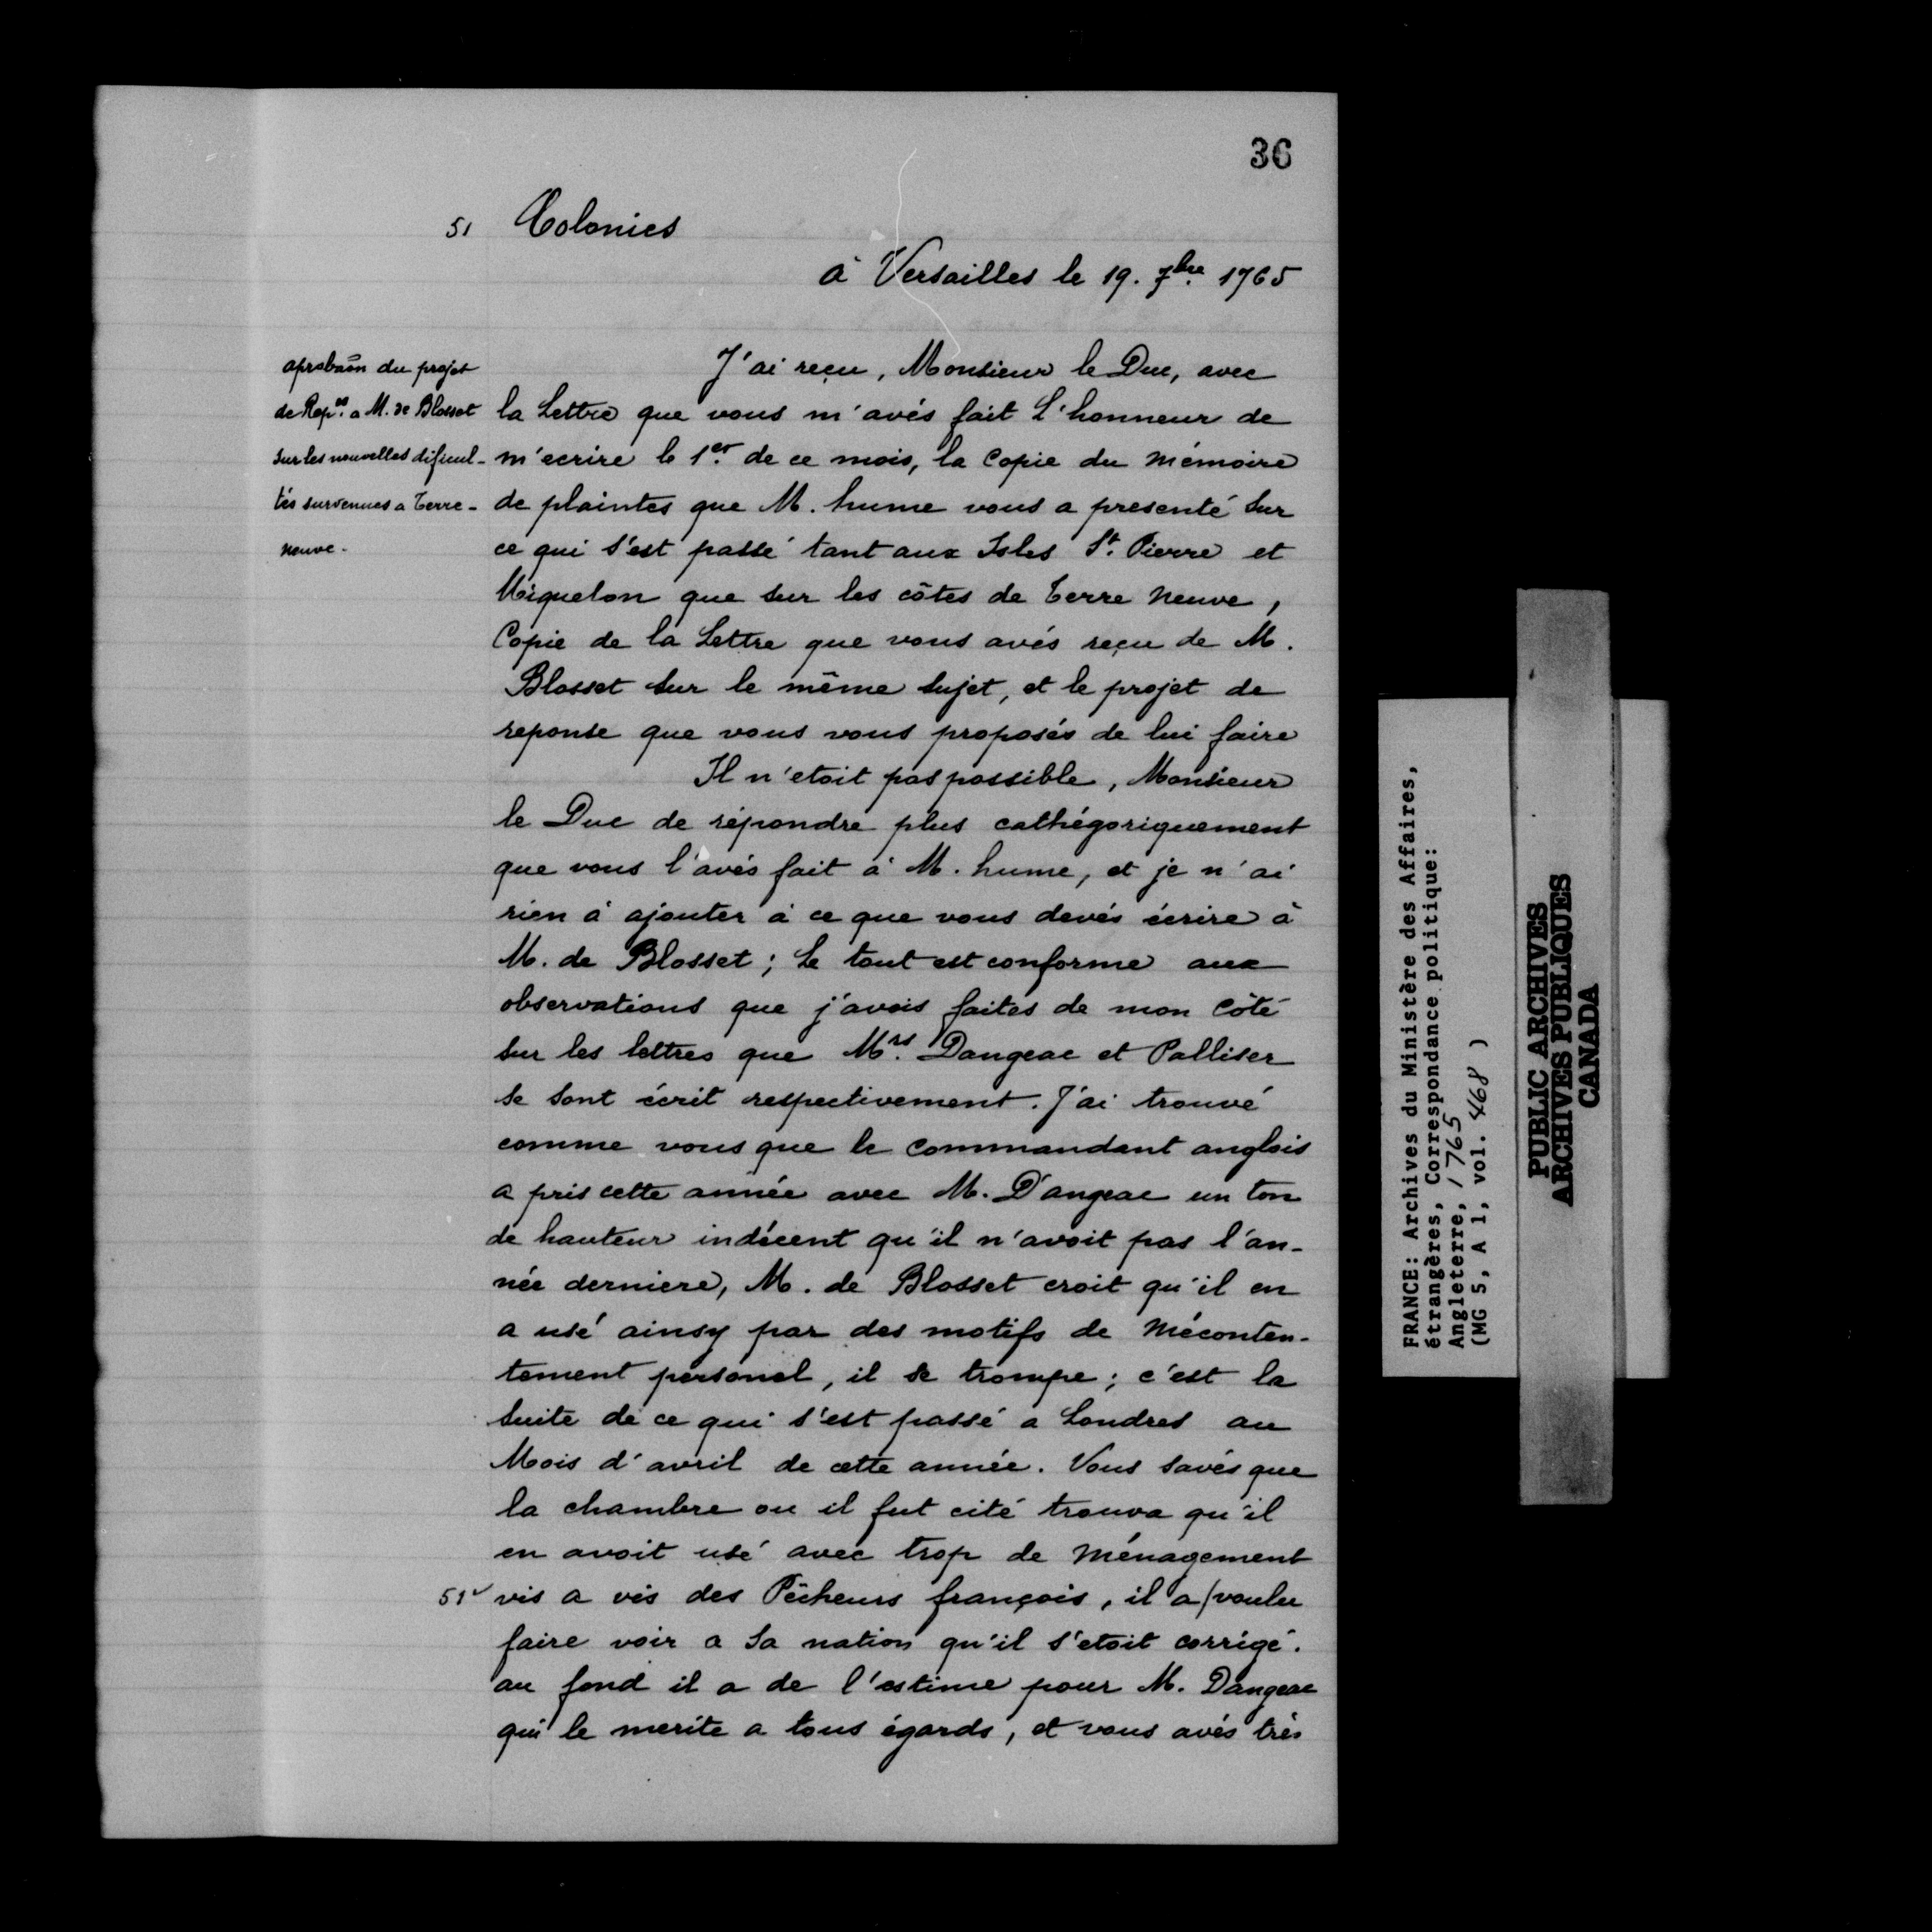 36
51 Colonies
à Versailles le 19. 7bre. 1765
aprobaôn du projet
de Repse. a M. de Blosset
sur les nouvelles dificul-
tés survenues a Terre-
neuve.
J'ai reçu, Monsieur le Duc, avec
la Lettre que vous m'avés fait l'honneur de
m'ecrire le 1er. de ce mois, la Copie du Mémoire
de plaintes que M. hume vous a presenté sur
ce qui s'est passé tant aux Isles St. Pierre et
Miquelon que sur les côtes de Terre Neuve,
Copie de la Lettre que vous avés reçu de M.
Blosset sur le même sujet, et le projet de
reponse que vous vous proposés de lui faire
Il n'etoit pas possible, Monsieur
le Duc de répondre plus cathégoriquement
que vous l'avés fait à M. hume, et je n'ai
rien à ajouter à ce que vous devés écrire à
M. de Blosset; Le tout est conforme aux
observations que j'avois faites de mon Côté
sur les lettres que Mrs. Dangeac et Palliser
se sont écrit respectivement. J'ai trouvé
comme vous que le Commandant anglois
a pris cette année avec M. D'angeac un ton
de hauteur indécent qu'il n'avoit pas l'an-
née derniere, M. de Blosset croit qu'il en
a usé ainsy par des motifs de Méconten-
tement personel, il se trompe; c'est la
suite de ce qui s'est passé a Londres au
Mois d'avril de cette année. Vous savés que
la chambre ou il fut cité trouva qu'il
en avoit usé avec trop de Ménagement
51v vis a vis des Pêcheurs françois, il a/voulu
faire voir a sa nation qu'il s'etoit corrigé.
au fond il a de l'estime pour M. Dangeac
qui le merite a tous égards, et vous avés très
FRANCE: Archives du Ministère des Affaires,
étrangères, Correspondance politique:
Angleterre, 1765
(MG 5, A 1, vol. 468 )
PUBLIC ARCHIVES
ARCHIVES PUBLIQUES
CANADA